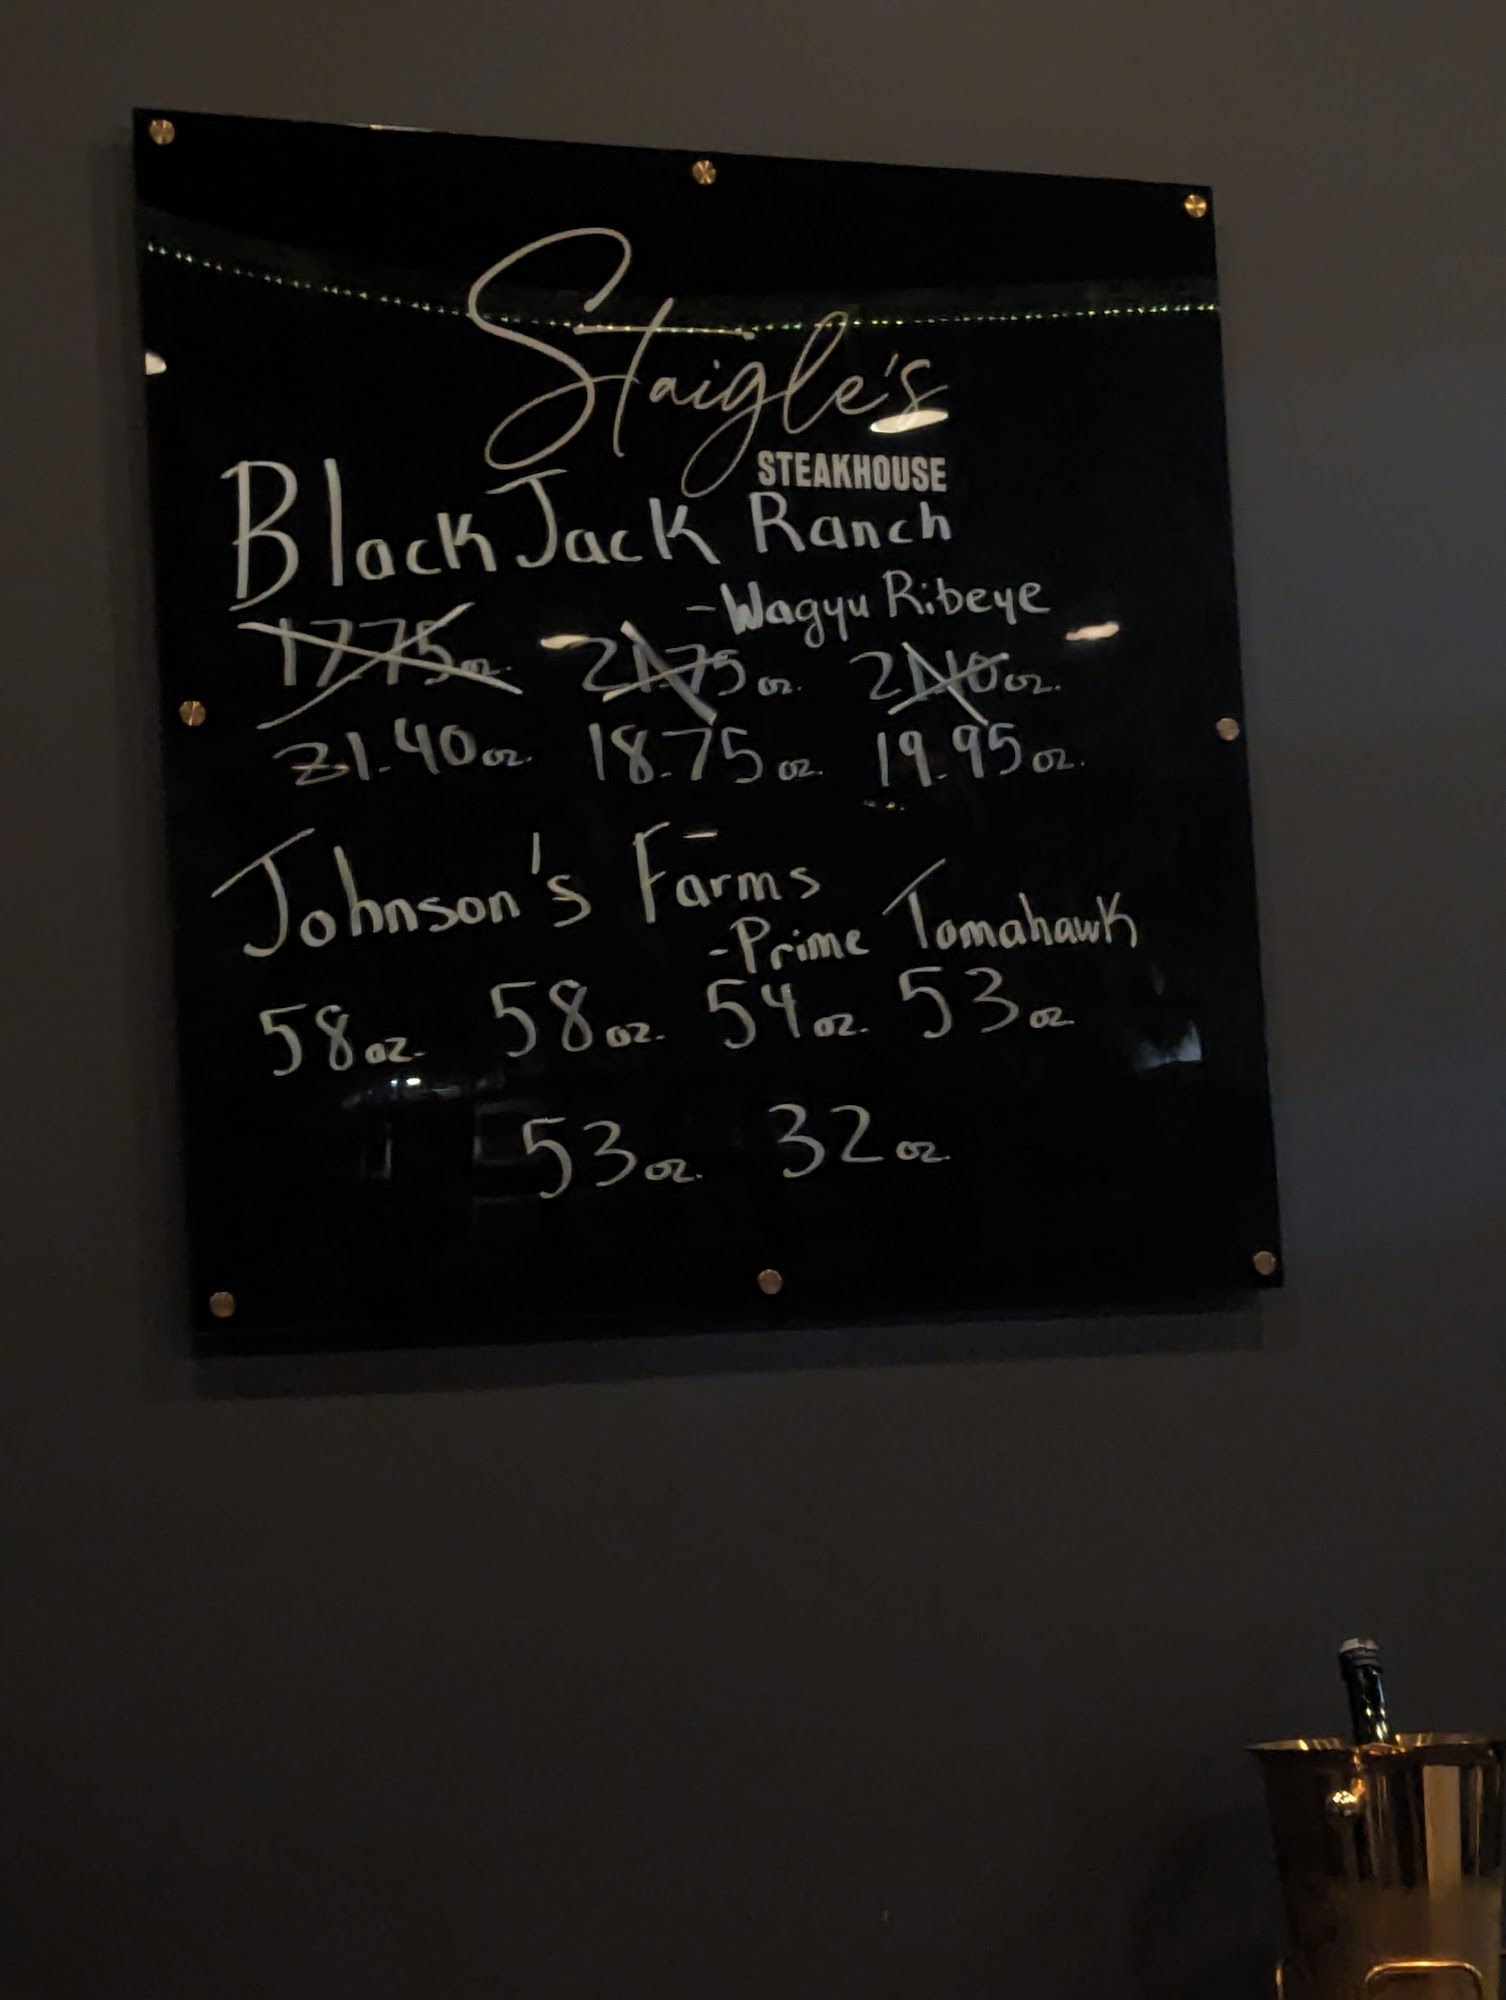 Staigle's
STEAKHOUSE
Black Jack Ranch
-Wagyu Ribeye
17.75oz. 21.75oz. 21.10oz.
21.40oz. 18.75oz. 19.95oz.
Johnson's Farms
-Prime Tomahawk
58oz. 58oz. 54oz. 53oz
53oz. 32oz.